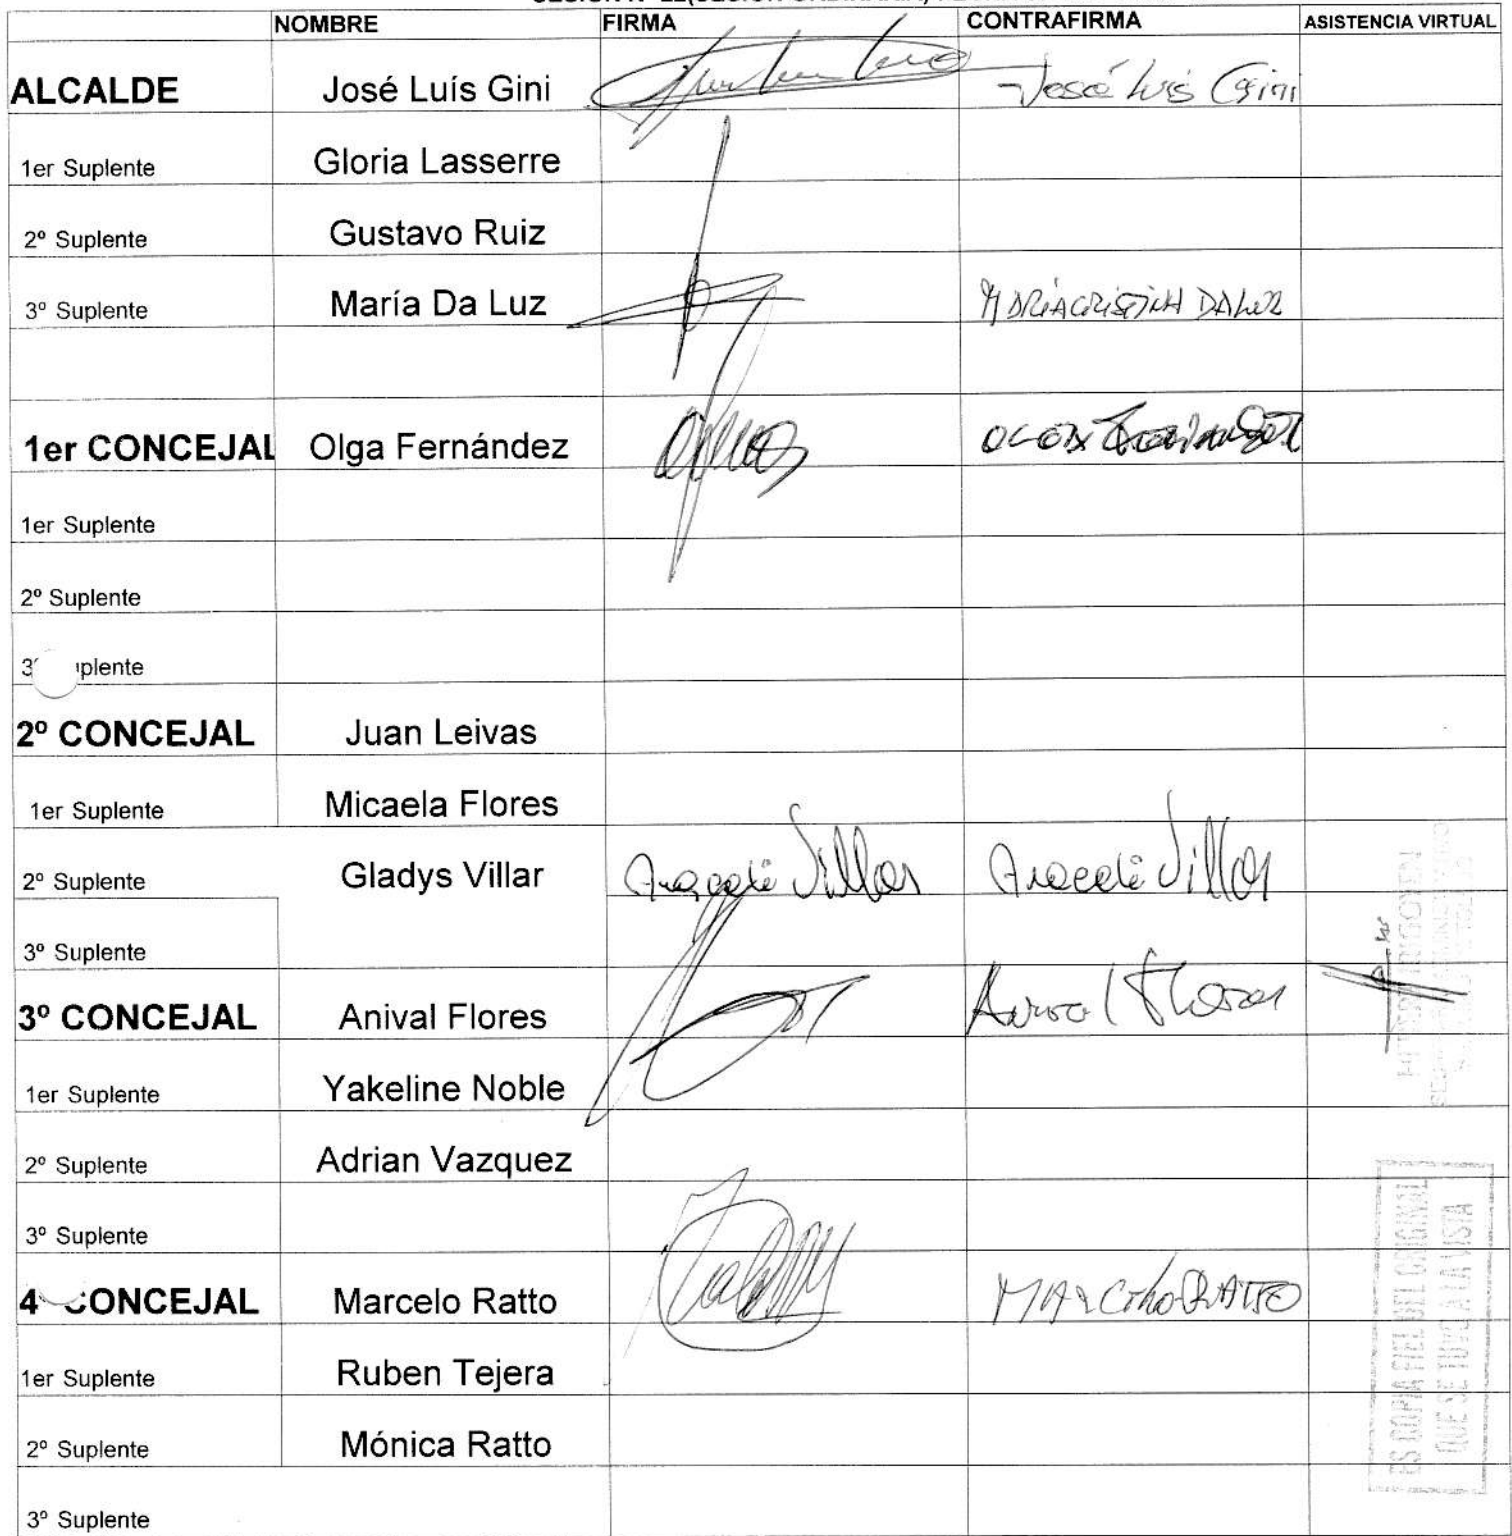 NOMBRE FIRMA CONTRAFIRMA ASISTENCIA VIRTUAL
ALCALDE José Luís Gini José Luis Gini
1er Suplente Gloria Lasserre
2º Suplente Gustavo Ruiz
3º Suplente María Da Luz MARÍA CRISTINA DA LUZ
1er CONCEJAL Olga Fernández
1er Suplente
2º Suplente
3º uplente
2º CONCEJAL Juan Leivas
1er Suplente Micaela Flores
2º Suplente Gladys Villar Araceli Villar Araceli Villar
3º Suplente
3º CONCEJAL Anival Flores Anival Flores
1er Suplente Yakeline Noble
2º Suplente Adrian Vazquez
3º Suplente
4 CONCEJAL Marcelo Ratto MARCELO RATTO
1er Suplente Ruben Tejera
2º Suplente Mónica Ratto
3º Suplente
ES COPIA FIEL DEL ORIGINAL
QUE SE TUVO A LA VISTA